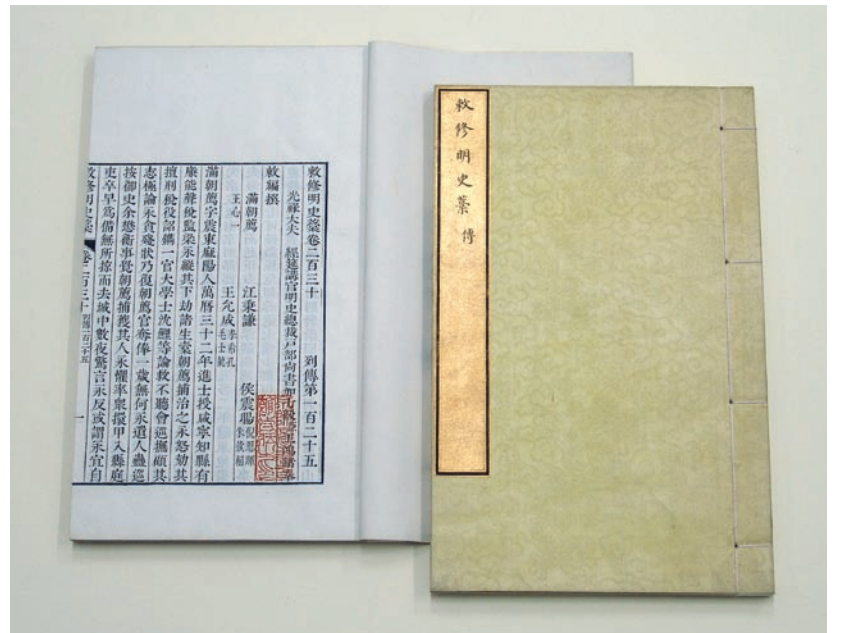 敕修明史藁卷二百三十 列傳第一百二十五
光祿大夫 經筵講官明史總裁戶部尚書加七級臣王鴻緒奉
敕編撰
滿朝薦 江秉謙 侯震暘 倪思輝 朱欽相
王心一 王允成 李希孔 毛士龍
滿朝薦字震東麻陽人萬曆三十二年進士授咸寧知縣有
廉能聲稅監梁永縱其下劫諸生橐朝薦捕治之永怒劾其
擅刑稅役詔鐫一官大學士沈鯉等論救不聽會巡撫顧其
志極論永貪殘狀乃復朝薦官奪俸一歲無何永遣人蠱巡
按御史余懋衡事覺朝薦捕獲其人永懼率衆擐甲入縣庭
吏卒早爲備無所掠而去城中數夜驚言永反或謂永宜自
敕修明史藁 卷二百三十 列傳一百二十五 一
敕修明史藁 傳